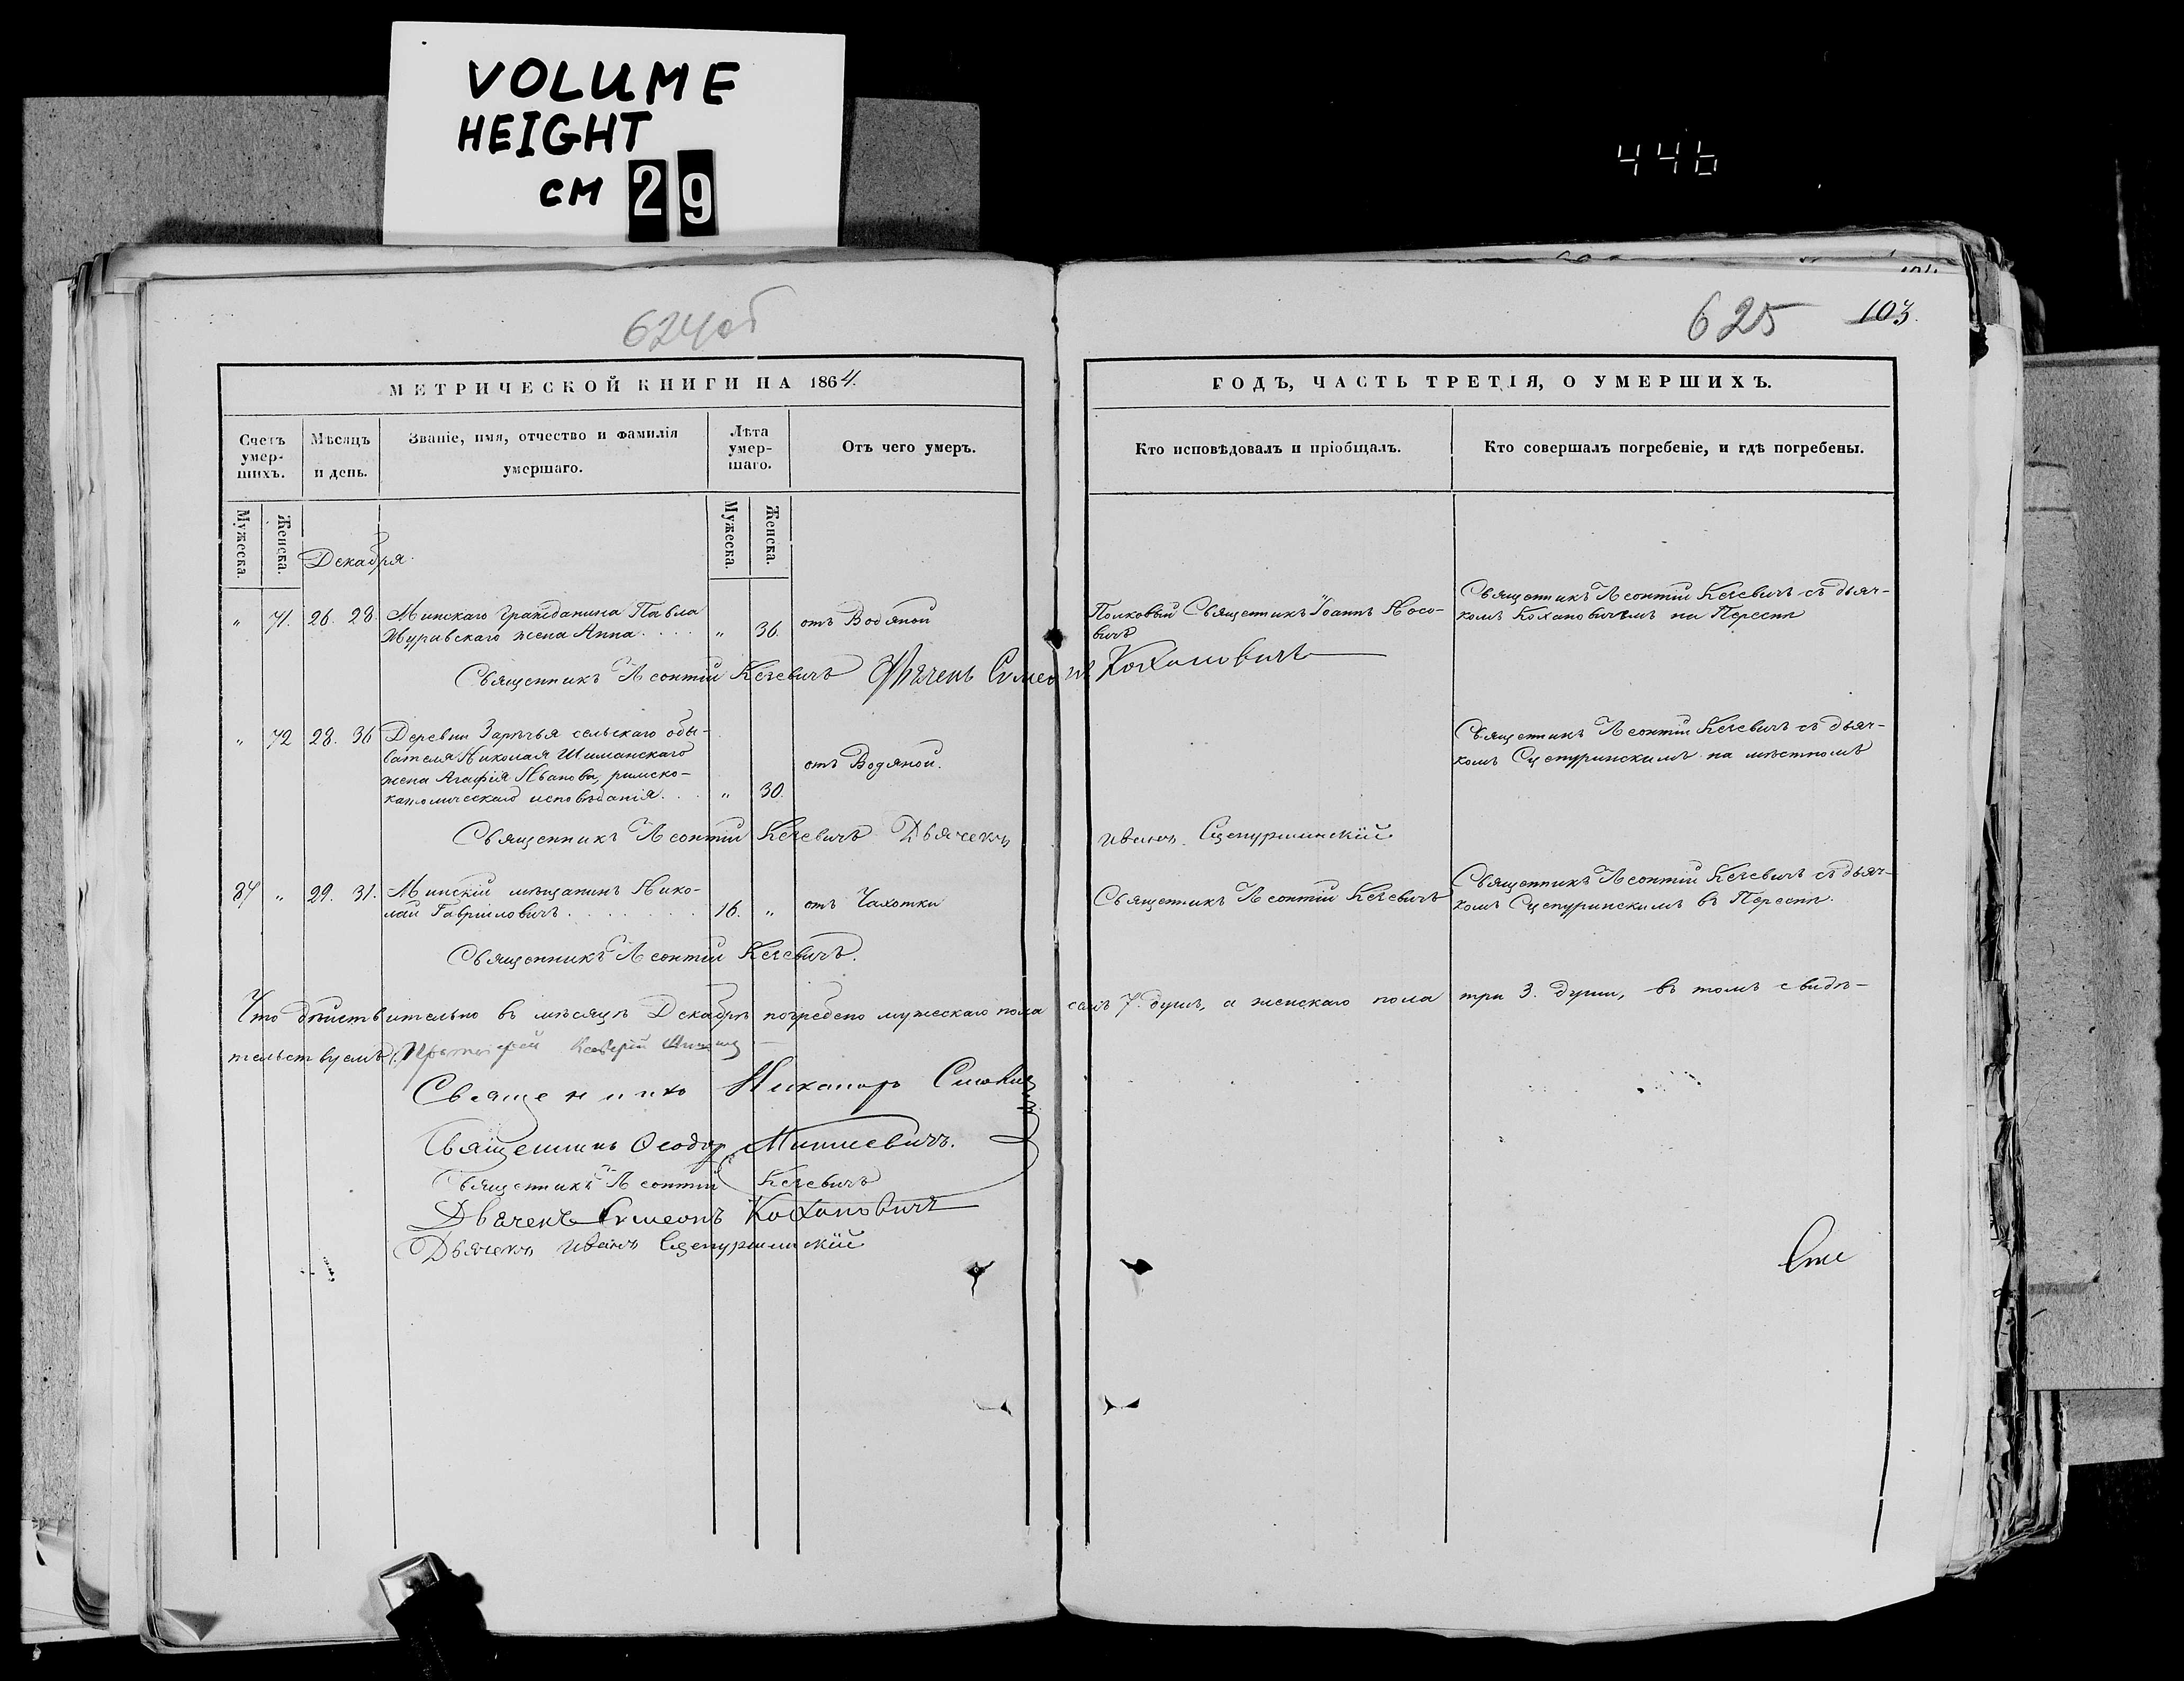 VOLUME
HEIGHT
CM 29
446
624об
625 103.
МЕТРИЧЕСКОЙ КНИГИ НА 1864.
ГОДЪ, ЧАСТЬ ТРЕТІЯ, О УМЕРШИХЪ.
Счетъ умер-шихъ.
Мѣсяцъ и день.
Званіе, имя, отчество и фамилія умершаго.
Лѣта умер-шаго.
Отъ чего умеръ.
Кто исповѣдовалъ и пріобщалъ.
Кто совершалъ погребеніе, и гдѣ погребены.
Мужеска. Женска.
Мужеска. Женска.
Декабря.
" 71. 26. 28. Минскаго гражданина Павла
Журавскаго жена Анна . . . . " 36. отъ Водяной
Полковый Священникъ Іоаннъ Носо-
вичъ
Священникъ Леонтій Кечевичъ съ дьяч-
комъ Кохановичемъ на Переспи
Священникъ Леонтій Кечевичъ Дьячекъ Симеонъ Кохановичъ
" 72 28. 30 Деревни Зарѣчья сельскаго обы-
вателя Николая Шиманскаго
жена Агафія Иванова, римско-
католическаго исповѣданія. . . " 30. отъ Водяной.
Священникъ Леонтій Кечевичъ съ дьяч-
комъ Сцепуринскимъ на мѣстномъ
Священникъ Леонтій Кечевичъ Дьячекъ Иванъ Сцепуржинскій
84 " 29. 31. Минскій мѣщанинъ Нико-
лай Гавриловичъ . . . . . . . 16. " отъ Чахотки
Священникъ Леонтій Кечевичъ
Священникъ Леонтій Кечевичъ съ дьяч-
комъ Сцепуринскимъ въ Переспи.
Священникъ Леонтій Кечевичъ.
Что дѣйствительно въ мѣсяцѣ Декабрѣ погребено мужескаго пола семь 7. душъ, а женскаго пола три 3. души, въ томъ свидѣ-
тельствуемъ: Протоіерей
Священникъ Никаноръ
Священникъ Ѳеодор Миткевичъ.
Священникъ Леонтій Кечевичъ
Дьячекъ Симеонъ Кохановичъ
Дьячекъ Иванъ Сцепуржинскій